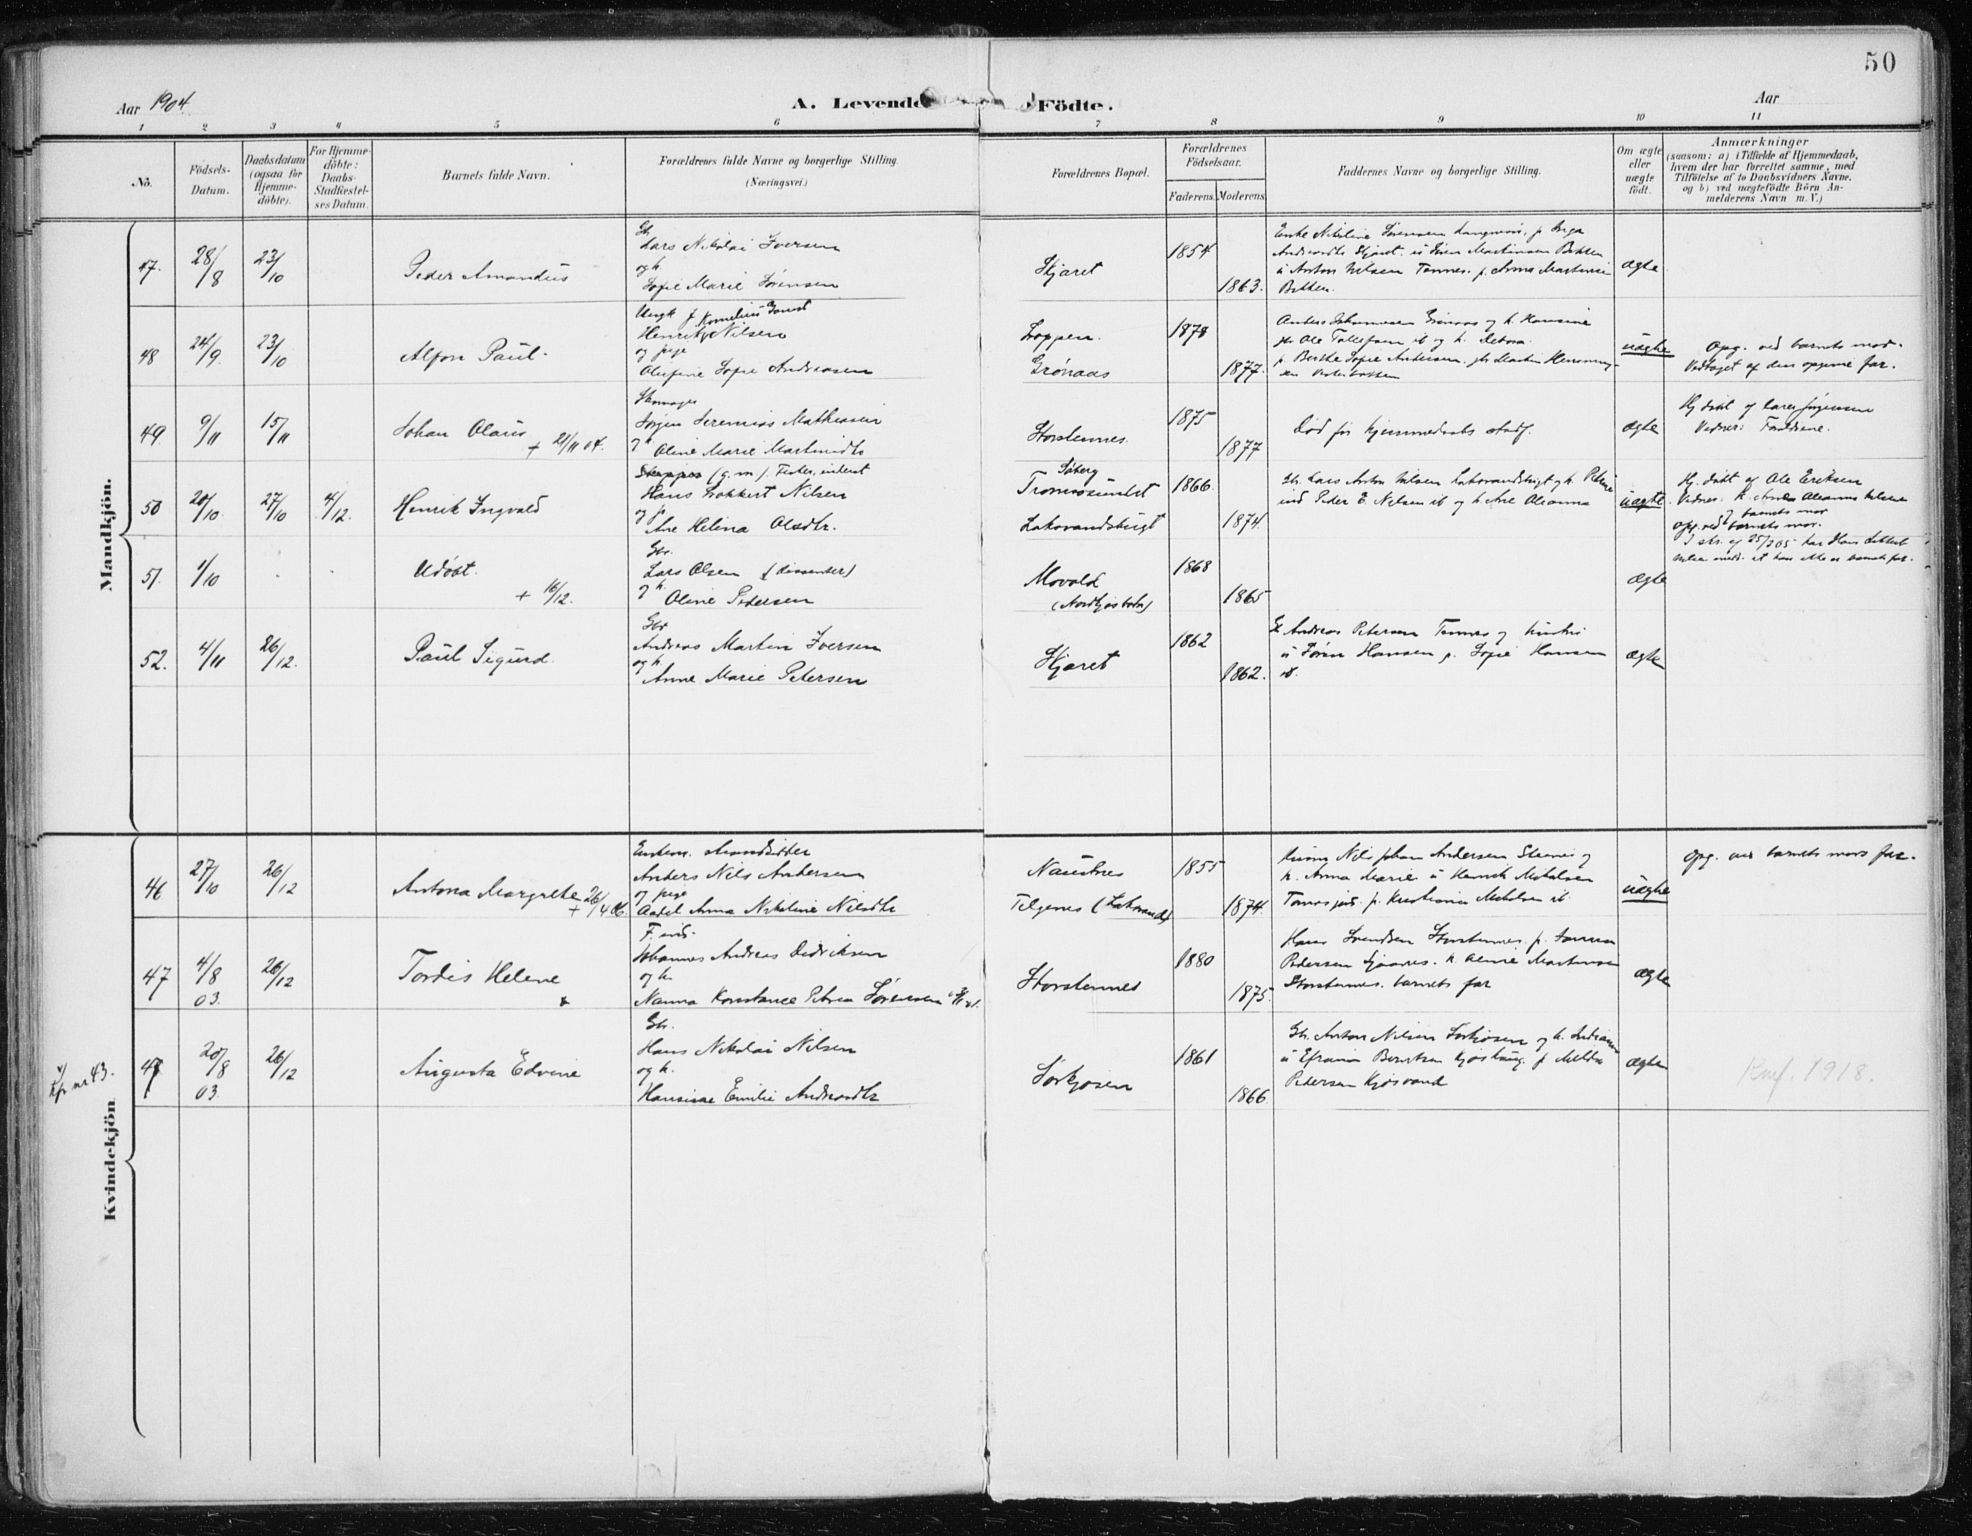 50
Aar 1904.
A. Levende Födte.
Aar
1 2 3 4 5 6 7 8 9 10 11
No.
Födsels-Datum.
Daabsdatum (ogsaa for Hjemme-döbte).
For Hjemme-döbte: Daabs-Stadfæstel-ses Datum.
Barnets fulde Navn.
Forældrenes fulde Navne og borgerlige Stilling.
(Næringsvei.)
Forældrenes Bopæl.
Forældrenes Födselsaar.
Faderens. Moderens.
Faddernes Navne og borgerlige Stilling.
Om ægte eller uægte födt.
Anmærkninger
(saasom: a) i Tilfælde af Hjemmedaab,
hvem der har forrettet samme, med
Tilföielse af to Daabsvidners Navne,
og b) ved uægtefödte Börn An-
melderens Navn m. V.)
Mandkjön.
47. 28/8 23/10 Peder Amandus
Gbr.
Lars Nikolai Iversen
og h.
Sofie Marie Sørensen
Skjaret 1854 1863.
Enke Nikoline Sørensen
Andreasdtr Skjaret. u Søren Martinsen Bakken
u Anton Nilsen Tennes. p. Anna Martinsen
Bakken.
ægte
48 24/9. 23/10 Alfon Paul.
Ungk. f Kornelius
Henrik Nilsen
og pige
Olufine Sofie Andreasen
Loppen.
Grønaas
1878 1877.
Anders Johannesen Grønaas og h. Hansine
Gbr Ole Tollefsen ib og h. Debora.
p. Berthe Sofie Andersen. Martin Henning-
sen
uægte
Opg. ved barnets mor.
Vedtaget af den opgivne far.
49 9/11 15/11 Johan Olaus + 21/11 04.
Skomager
Jørgen Jeremias Mathiasen
og h. Oline Marie Martinsdtr
Storstennes. 1875 1877
Død før hjemmedaabs stadf.
ægte
Hj. døbt af Lars Jørgensen
Vidner: Forældrene.
50 20/10. 27/10 4/12. Henrik Ingvald
(g.m.). Fisker, inderst
Hans Lokkert Nilsen
og p.
Ane Helina Olsdtr.
Søberg
Tromsøsundet 1866.
Laksvandsbugt 1874.
Gbr. Lars Anton Nilsen Laksvandsbugt og h. Petrine
ind Peder E. Nilsen ib og h. Ane Oleanna
uægte
Hj. døbt af Ole Eriksen
Vidner: h. Oleanna Nilsen
og barnets mor
opg. ved barnets mor.
I skr. af 25/2 05 har Hans Lokkert
51. 1/10 Udøbt. + 16/12.
Gbr.
Lars Olsen (dissenter)
og h.
Oline Pedersen
Movold
(Nordkjosbotn)
1868 1865
ægte
52. 4/11 26/12. Paul Sigurd.
Gbr
Andreas Martin Iversen
og h.
Anne Marie Petersen
Skjaret 1862 1862.
Gb Andreas Petersen Tennes og hustru
u Søren Hansen p. Sofie Hansen
ib.
ægte
Kvindekjön.
46 27/10 26/12 Antona Margrethe + 26/4 06.
Enkem.
Anders Nils Andersen
og pige
Aadel Anna Nikoline Nilsdtr
Naustnes 1855
Telgenes (Laksvand) 1874.
Nils Johan Andersen og
h. Anna Marie u Henrik Mikalsen
p. Kristianna Mikalsen ib.
uægte
opg. ved barnets mors far.
47 4/8 03. 26/12 Tordis Helene
F. ind.
Johannes Andreas Didriksen
og h.
Nanna Konstance Petrea Sørensen
Storstennes 1880 1875.
Hans Svendsen Storstennes. p.
Pedersen h. Oline Martinsen
Storstennes. barnets far
ægte
v/ kfr nr 43.
48 20/8 03. 26/12 Augusta Edvine
Gbr.
Hans Nikolai Nilsen
og h.
Hansine Emilie Andreasdtr
Sørkjosen 1861 1866
Gbr. Anton Nilsen Sørkjosen og h.
u Efraim Berntsen p
Petersen Kjosvand
ægte
Knf. 1918.